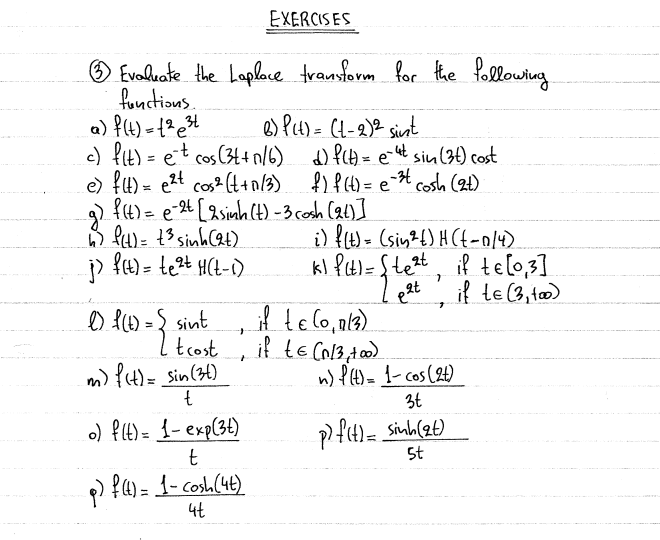 EXERCISES
③ Evaluate the Laplace transform for the following
functions.
a) f(t) = t²e^{3t} b) f(t) = (t-2)² sint
c) f(t) = e^{-t} cos(3t+π/6) d) f(t) = e^{-4t} sin(3t) cost
e) f(t) = e^{2t} cos²(t+π/3) f) f(t) = e^{-3t} cosh(2t)
g) f(t) = e^{-2t} [2sinh(t) - 3cosh(2t)]
h) f(t) = t³ sinh(2t) i) f(t) = (sin²t) H(t-π/4)
j) f(t) = te^{2t} H(t-1) k) f(t) = { te^{2t} , if t∈[0,3]
e^{2t} , if t∈(3,+∞)
l) f(t) = { sint , if t∈(0,π/3)
tcost , if t∈(π/3,+∞)
m) f(t) = sin(3t)/t n) f(t) = 1-cos(2t)/3t
o) f(t) = 1-exp(3t)/t p) f(t) = sinh(2t)/5t
q) f(t) = 1-cosh(4t)/4t